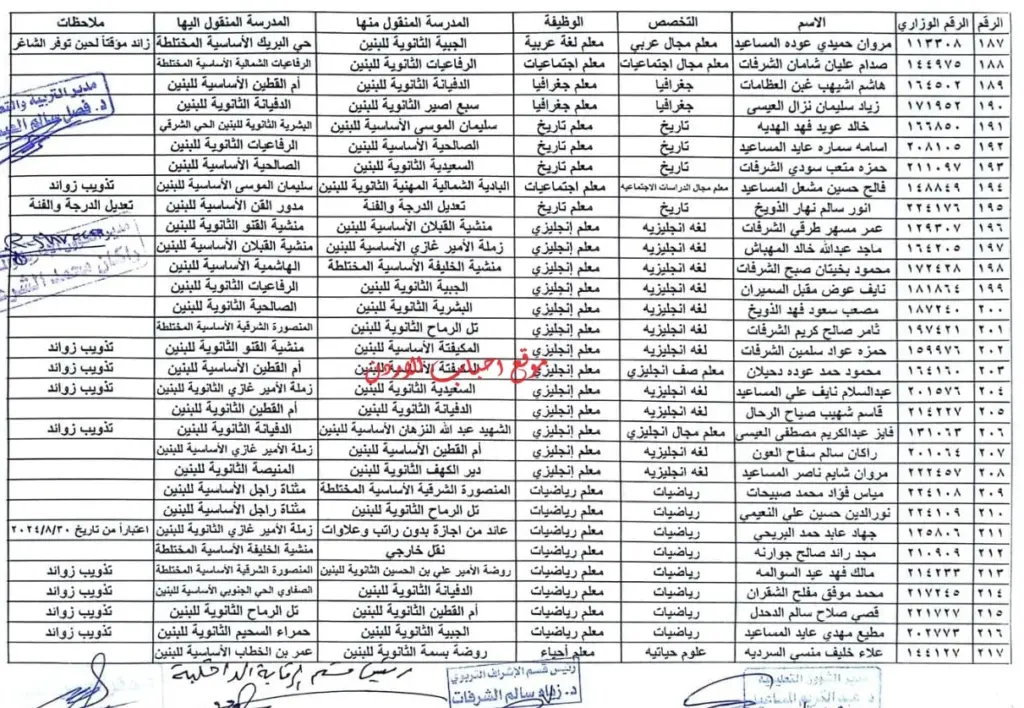 الرقم الرقم الوزاري الاسم التخصص الوظيفة المدرسة المنقول منها المدرسة المنقول اليها ملاحظات
١٨٧ ١١٣٣٠٨ مروان حميدي عوده المساعيد معلم مجال عربي معلم لغة عربية الجبية الثانوية للبنين حي البريك الأساسية المختلطة زائد مؤقتاً لحين توفر الشاغر
١٨٨ ١٤٤٩٧٥ صدام عليان شامان الشرفات معلم مجال اجتماعيات معلم اجتماعيات الرفاعيات الثانوية للبنين الرفاعيات الشمالية الأساسية المختلطة
١٨٩ ١٦٤٥٠٢ هاشم اشيهب غبن العظامات جغرافيا معلم جغرافيا الدفيانة الثانوية للبنين أم القطين الأساسية للبنين
١٩٠ ١٧١٩٥٢ زياد سليمان نزال العيسى جغرافيا معلم جغرافيا سبع اصير الثانوية للبنين الدفيانة الثانوية للبنين
١٩١ ١٦٦٨٥٠ خالد عويد فهد الهديه تاريخ معلم تاريخ سليمان الموسى الأساسية للبنين البشرية الثانوية للبنين الحي الشرقي
١٩٢ ٢٠٨١٠٥ اسامه سماره عايد المساعيد تاريخ معلم تاريخ الصالحية الأساسية للبنين الرفاعيات الثانوية للبنين
١٩٣ ٢١١٠٩٧ حمزه متعب سودي الشرفات تاريخ معلم تاريخ السعيدية الثانوية للبنين الصالحية الأساسية للبنين
١٩٤ ١٤٨٨٤٩ فالح حسين مشعل المساعيد معلم مجال الدراسات الاجتماعيه معلم اجتماعيات البادية الشمالية المهنية الثانوية للبنين سليمان الموسى الأساسية للبنين تذويب زوائد
١٩٥ ٢٢٤١٧٦ انور سالم نهار الذويخ تاريخ معلم تاريخ تعديل الدرجة والفئة مدور القن الأساسية للبنين تعديل الدرجة والفئة
١٩٦ ١٢٩٣٠٧ عمر مسهر طرقي الشرفات لغه انجليزيه معلم إنجليزي منشية القبلان الأساسية للبنين منشية القنو الثانوية للبنين
١٩٧ ١٦٤٢٠٥ ماجد عبدالله خالد المهباش لغه انجليزيه معلم إنجليزي زملة الأمير غازي الأساسية للبنين منشية القبلان الأساسية للبنين
١٩٨ ١٧٢٤٢٨ محمود بخيتان صبح الشرفات لغه انجليزيه معلم إنجليزي منشية الخليفة الأساسية المختلطة الهاشمية الثانوية للبنين
١٩٩ ١٨١٨٦٤ نايف عوض مقبل السميران لغه انجليزيه معلم إنجليزي الجبية الثانوية للبنين الرفاعيات الثانوية للبنين
٢٠٠ ١٨٧٢٤٠ مصعب سعود فهد الذويخ لغه انجليزيه معلم إنجليزي البشرية الثانوية للبنين الصالحية الثانوية للبنين
٢٠١ ١٩٧٤٢١ ثامر صالح كريم الشرفات لغه انجليزيه معلم إنجليزي تل الرماح الثانوية للبنين المنصورة الشرقية الأساسية المختلطة
٢٠٢ ١٥٩٩٧٦ حمزه عواد سلمين الشرفات لغه انجليزيه معلم إنجليزي المكيفتة الأساسية للبنين منشية القنو الثانوية للبنين تذويب زوائد
٢٠٣ ١٦٤١٦٠ محمود حمد عوده دحيلان معلم صف انجليزي معلم إنجليزي المكيفتة الأساسية للبنين أم القطين الأساسية للبنين تذويب زوائد
موقع احباب الاردن
٢٠٤ ٢٠١٥٧٦ عبدالسلام نايف علي المساعيد لغه انجليزيه معلم إنجليزي السعيدية الثانوية للبنين زملة الأمير غازي الثانوية للبنين تذويب زوائد
٢٠٥ ٢١٤٢٢٧ قاسم شهيب صياح الرحال لغه انجليزيه معلم إنجليزي الدفيانة الثانوية للبنين أم القطين الثانوية للبنين
٢٠٦ ١٣١٠٦٣ فايز عبدالكريم مصطفى العيسي معلم مجال انجليزي معلم إنجليزي الشهيد عبد الله النزهان الأساسية للبنين الدفيانة الثانوية للبنين تذويب زوائد
٢٠٧ ٢٠١٠٦٤ راكان سالم سفاح العون لغه انجليزيه معلم إنجليزي أم القطين الأساسية للبنين زملة الأمير غازي الأساسية للبنين
٢٠٨ ٢٢٢٤٥٧ مروان شايم ناصر المساعيد لغه انجليزيه معلم إنجليزي دير الكهف الثانوية للبنين المنيصة الثانوية للبنين
٢٠٩ ٢٢٤١٠٨ مياس فؤاد محمد صبيحات رياضيات معلم رياضيات المنصورة الشرقية الأساسية المختلطة مثناة راجل الأساسية للبنين
٢١٠ ٢٢٤١٠٩ نورالدين حسين علي النعيمي رياضيات معلم رياضيات تل الرماح الثانوية للبنين مثناة راجل الأساسية للبنين
٢١١ ١٢٥٨٠٦ جهاد عابد حمد البريحي رياضيات معلم رياضيات عائد من اجازة بدون راتب وعلاوات زملة الأمير غازي الثانوية للبنين اعتباراً من تاريخ ٢٠٢٤/٨/٣٠
٢١٢ ٢١٠٩٠٩ مجد رائد صالح جوارنه رياضيات معلم رياضيات نقل خارجي منشية الخليفة الأساسية المختلطة
٢١٣ ٢١٤٢٣٣ مالك فهد عيد السوالمه رياضيات معلم رياضيات روضة الأمير علي بن الحسين الثانوية للبنين المنصورة الشرقية الأساسية المختلطة تذويب زوائد
٢١٤ ٢١٧٢٤٥ محمد موفق مفلح الشقران رياضيات معلم رياضيات الدفيانة الثانوية للبنين الصفاوي الحي الجنوبي الأساسية للبنين تذويب زوائد
٢١٥ ٢٢١٧٢٧ قصي صلاح سالم الدحدل رياضيات معلم رياضيات أم القطين الثانوية للبنين تل الرماح الثانوية للبنين تذويب زوائد
٢١٦ ٢٠٢٧٧٣ مطيع مهدي عايد المساعيد رياضيات معلم رياضيات الجبية الثانوية للبنين حمراء السحيم الثانوية للبنين تذويب زوائد
٢١٧ ١٤٤١٢٧ علاء خليف منسي السرديه علوم حياتيه معلم أحياء روضة بسمة الثانوية للبنين عمر بن الخطاب الأساسية للبنين
مدير التربية والتع
د. فصل سالم
راكان محمد
رئيس قسم الرقابة الداخلية
رئيس قسم الإشراف التربوي
د. زهاء سالم الشرفات
مدير الشؤون التعليمية
د. عبدالكريم المساعيد